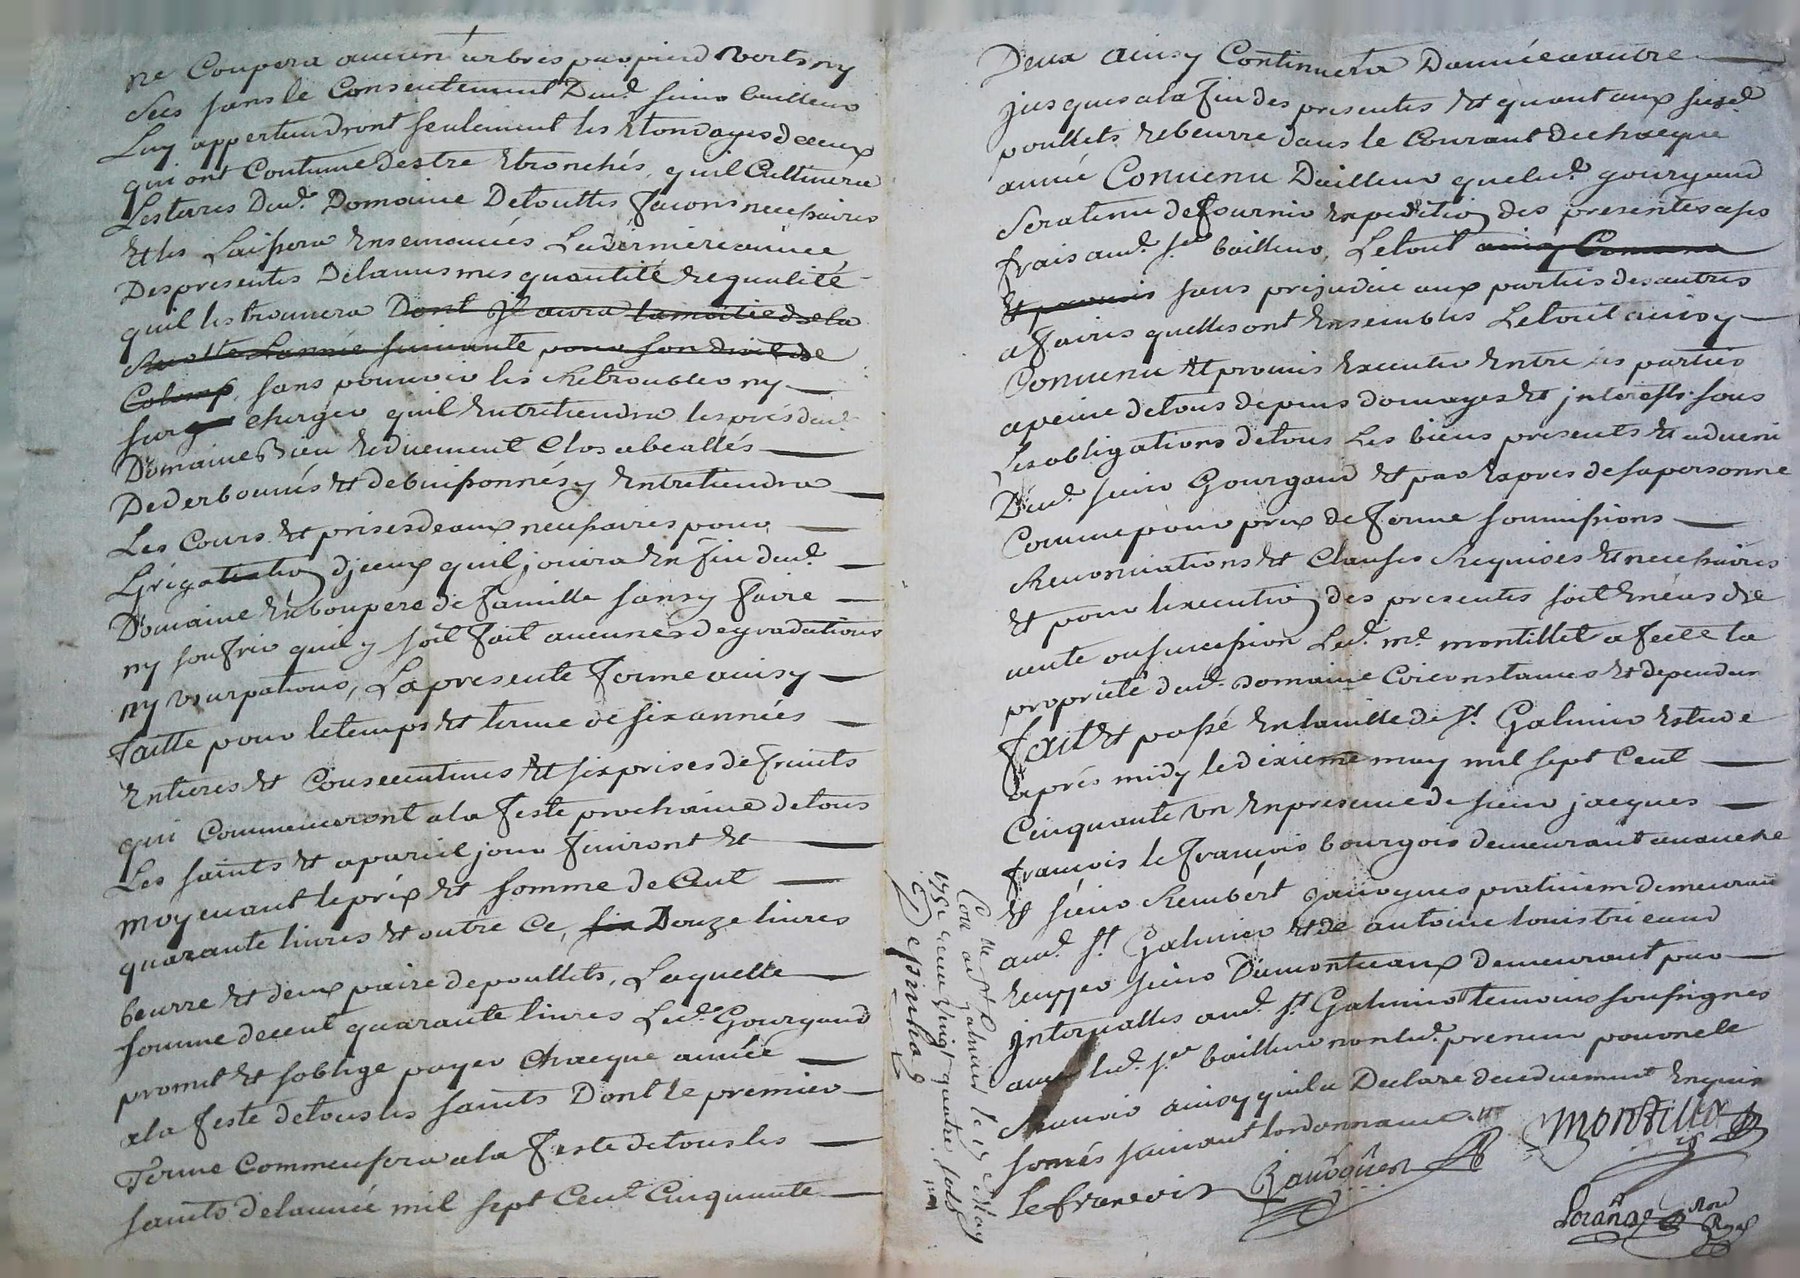 ne Coupera aucun arbres par pied verts ny
secs sans le Consentement Dud. sieur bailleur
Luy appertiendront seulement les Etondages de ceux
qui ont Coutume Destre Etronchés, quil Cultivera
Les terres Dud. Domaine De touttes facons necessaires
Et les Laissera Ensemancés La derniere année
Des presentes De la mesmes quantité Requalité
quil les trouvera Dont Jl aura la moitie de la
Suitte Lannée suivante pour son droit de
Colomp sans pouvoir les Retroubler ny
surcharger quil Entretiendra les prés dud.
Domaine Bien Reduement Clos abeallés
Dederbonnés Et debuissonnés y Entretiendra
Les Cours Et prises deaux necessaires pour
Lyrigation djceux quil jouira En fin dud.
Domaine En bon pere de famille sans y faire
ny soufrir quil y soit fait aucunes degradations
ny usurpations, La presente ferme ainsy
faitte pour le temps Et terme de six années
Entieres Et Consecutives Et six prises de fruits
qui Commenceront a la feste prochaine de tous
Les saints Et a pareil jour finiront Et
moyenant le prix Et somme de Cent
quarante livres Et outre Ce, six Douze livres
beurre Et deux paire de poullets, Laquelle
somme de cent quarante livres Led. Gourgaud
promet Et soblige payer Chacque année
a la feste de tous les saints Dont le premier
Terme Commensera a la feste de tous les
saints de lannée mil sept Cent Cinquante
Con.lle a St galmier le 17e May
175 vingt quatre sols
Depinhac
Deux ainsy Continuera Dannée a autre
jusques a la fin des presentes Et quant aux susd.
poullets Rebeurre dans le Courant de chacque
année Convenu Dailleur que led. gourgaud
sera tenu de fournir Expedition des presentes a ses
frais aud. sr. bailleur, Le tout ainsy Convenu
Et promis sans prejudice aux parties des autres
affaires quelles ont Ensembles Le tout ainsy
Convenu Et promis Executer Entre les parties
a peine de tous depens domages Et jnterests sous
Les obligations de tous Les biens presents Et advenir
Dud. sieur Gourgaud Et par Expres de sa personne
Comme pour prix de ferme soumissions
Renonciations Et Clauses Requises Et necessaires
Et pour lexecution des presentes soit En cas de
vente ou succession Led. me. montillet afecte la
propriété dud. domaine Circonstances Et dependan
fait Et passé En la ville de St. Galmier Estude
aprés midy le dixieme may mil sept Cent
Cinquante un En presence de sieur jacques
francois le francois bourgois demeurant
Et sieur Rembért pratticien demeurant
aud. St. Galmier Et de antoine louis
sieur Dumonteaux demeurant par
jntervalles aud. St. Galmier temoins soussignés
avec led. sr. bailleur non led. preneur pour ne le
scavoir ainsy quil a Declaré de ce duement Enquis
somés suivant lordonnance
Montillet
le francois
Lorange Nore Royal